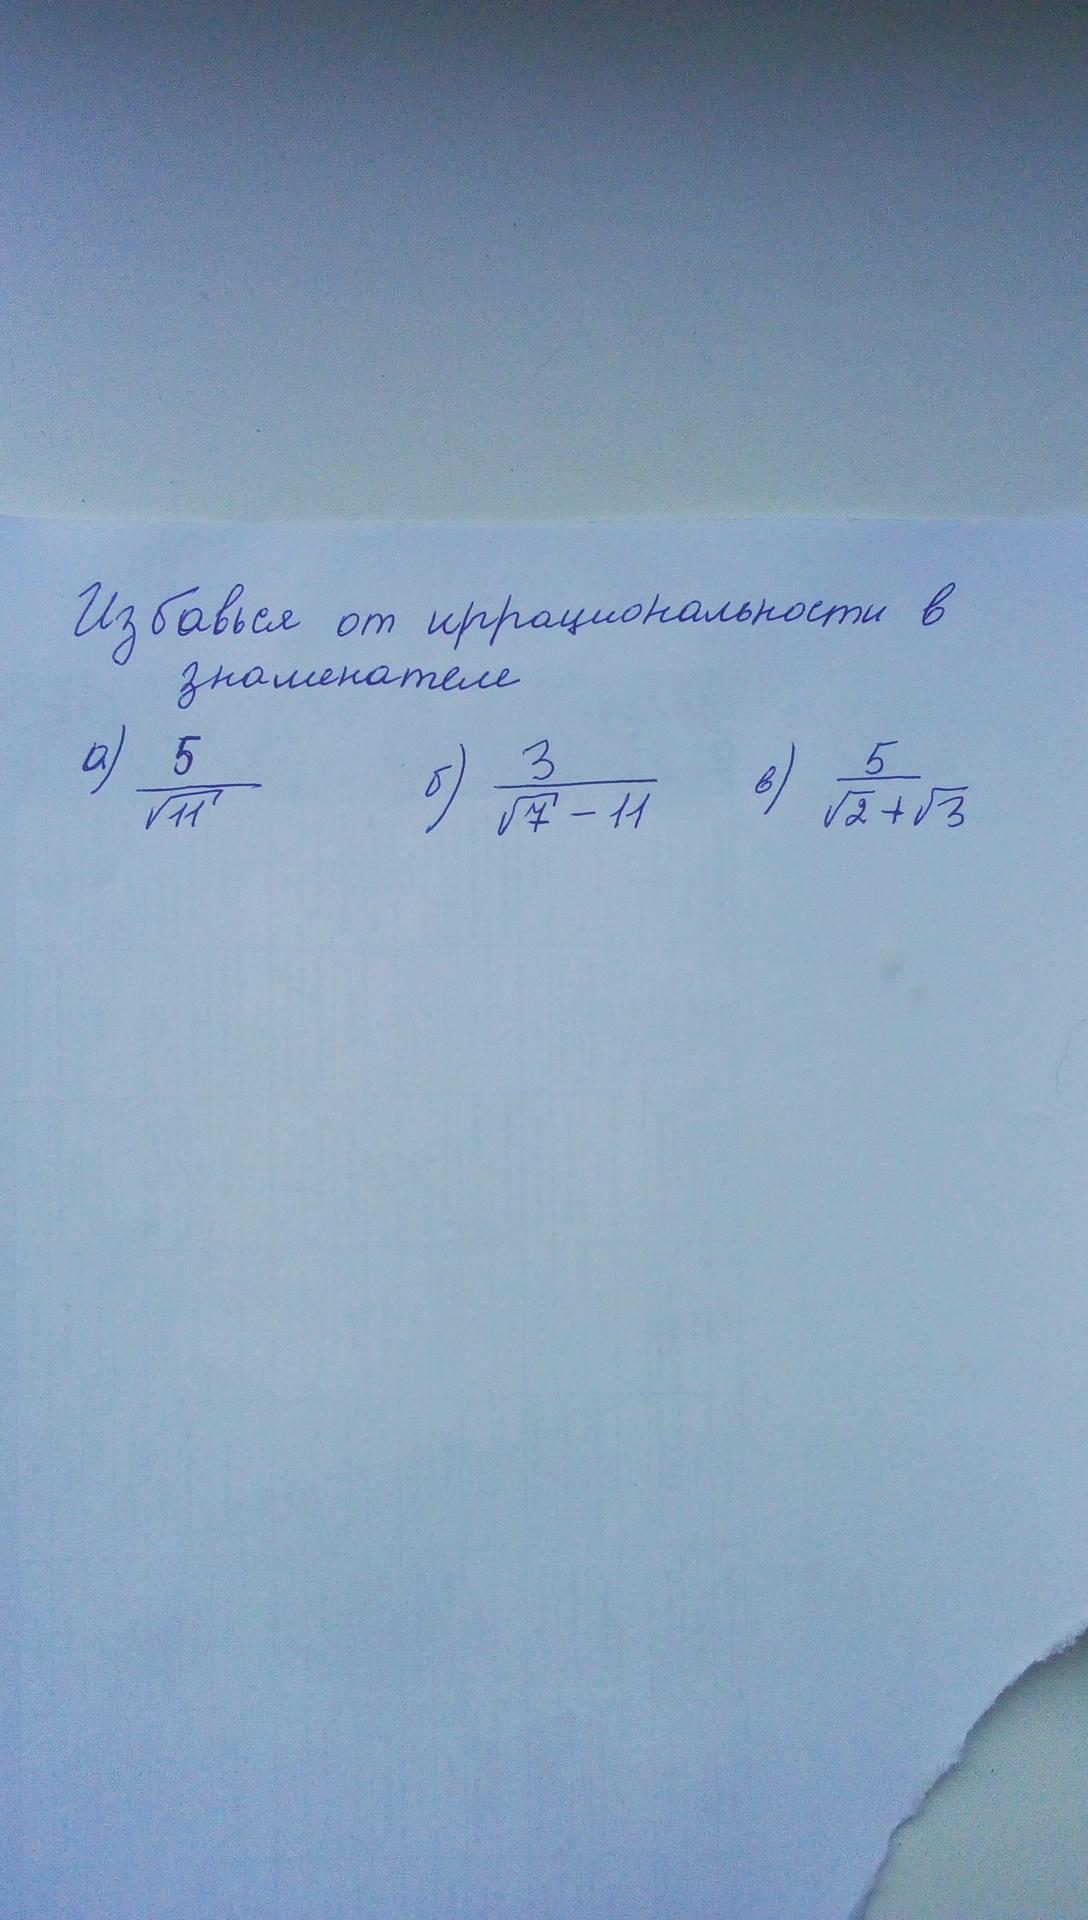 Избавься от иррациональности в
знаменателе
а) 5/√11 б) 3/(√7 - 11) в) 5/(√2 + √3)